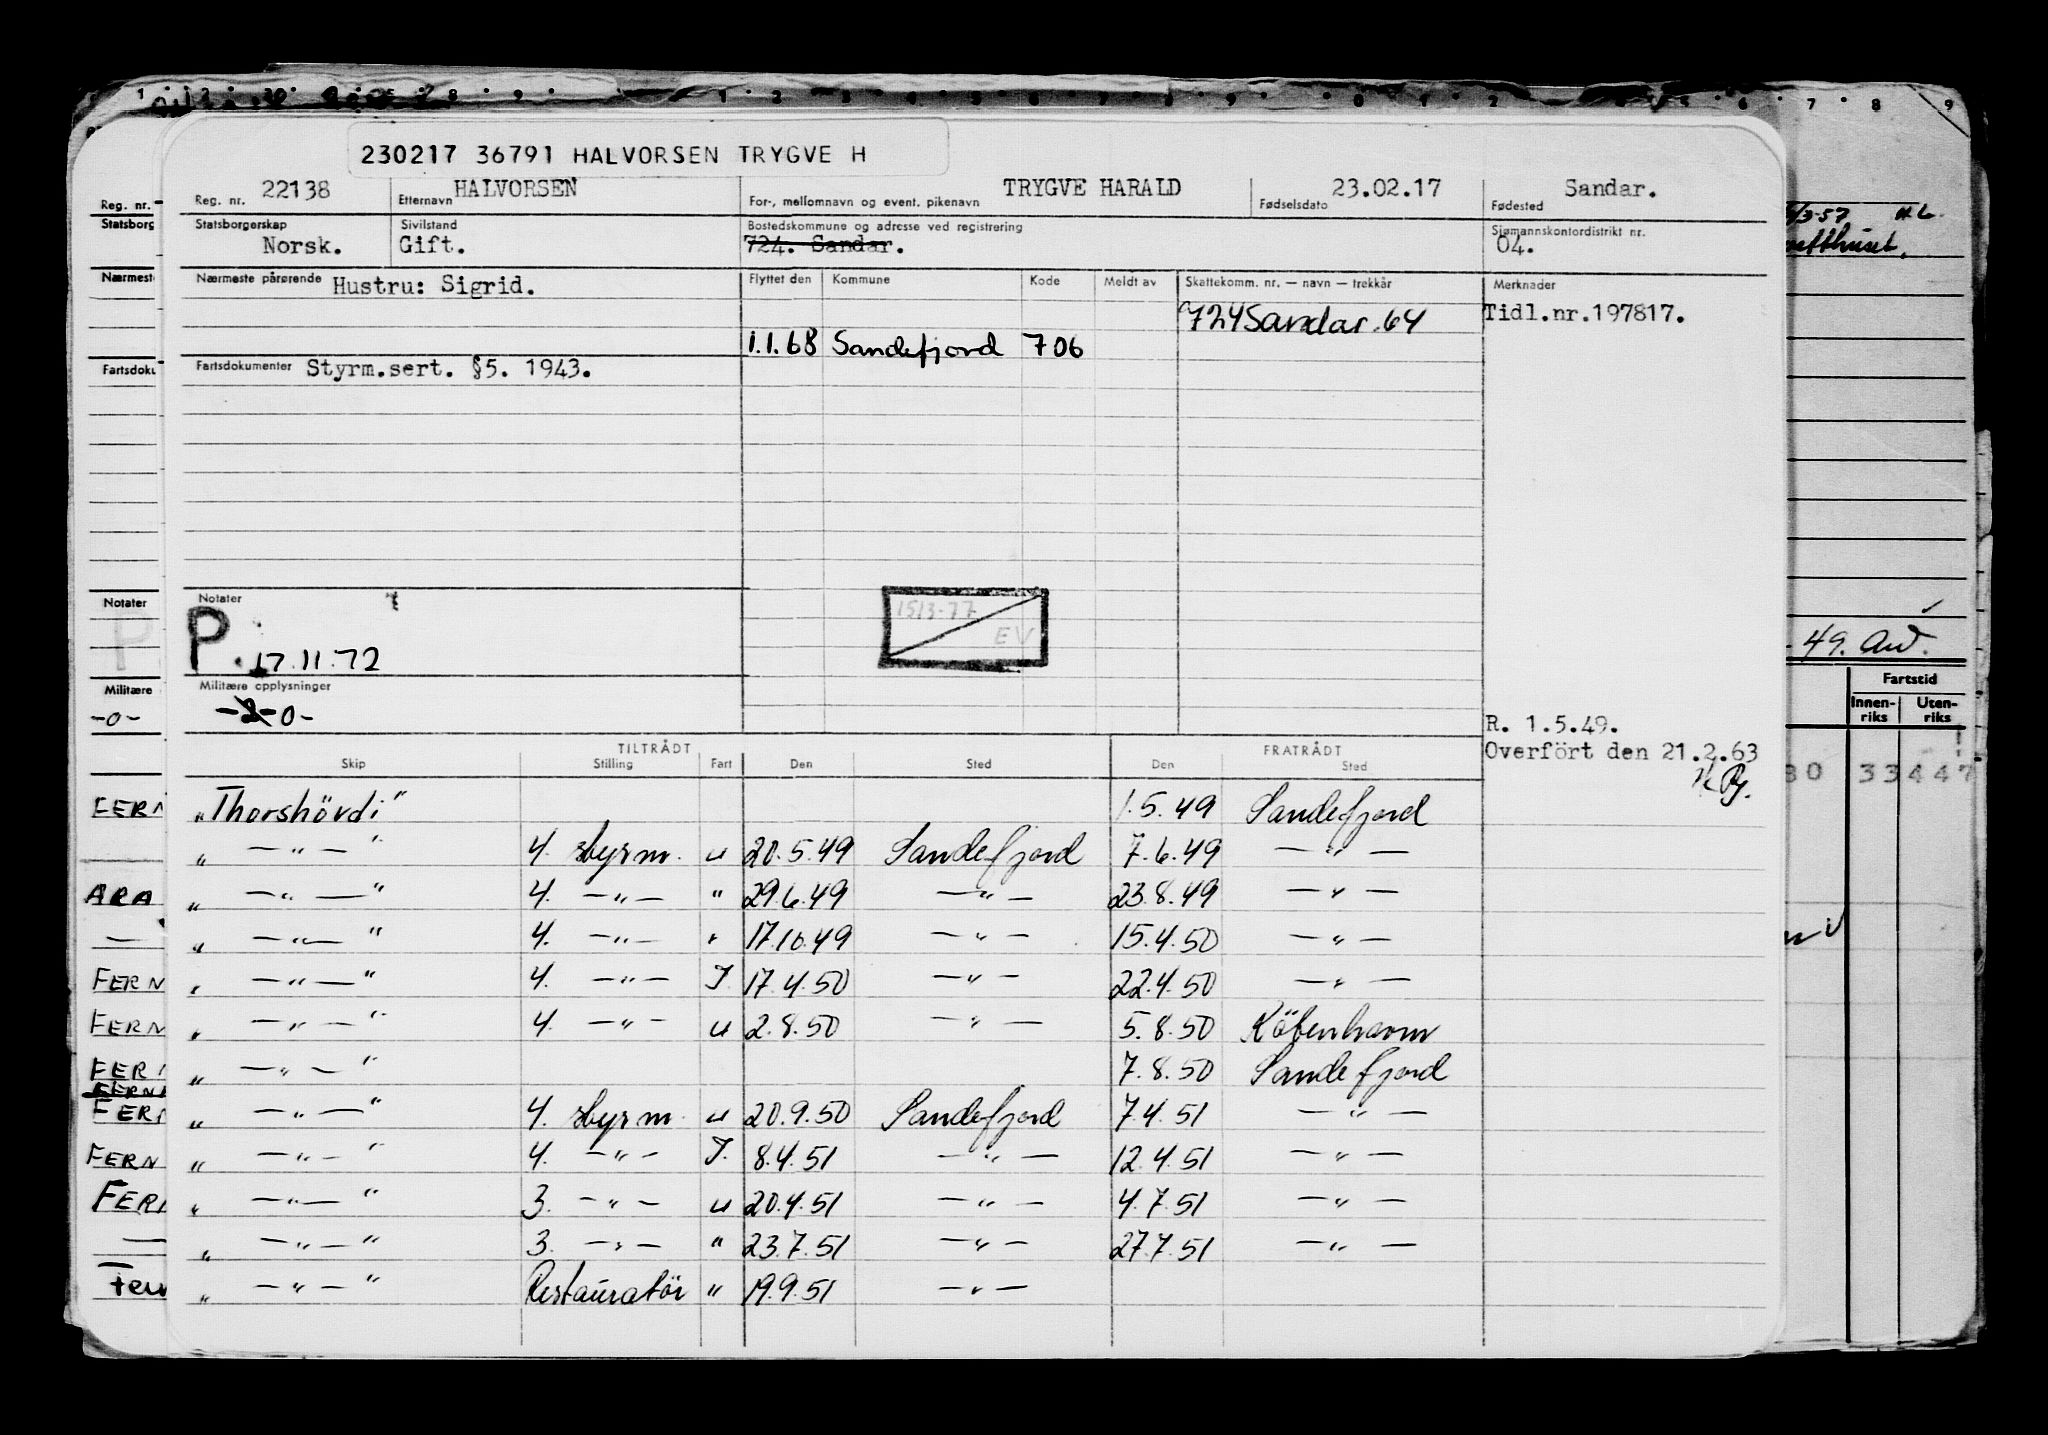 230217 36791 HALVORSEN TRYGVE H
Reg. nr. 22138 Etternavn HALVORSEN For-, mellomnavn og event. pikenavn TRYGVE HARALD Fødselsdato 23.02.17 Fødested Sandar.
Statsborgerskap Norsk. Sivilstand Gift. Bostedskommune og adresse ved registrering 724. Sandar. Sjømannskontordistrikt nr. 04.
Nærmeste pårørende Hustru: Sigrid. Flyttet den Kommune Kode Meldt av Skattekomm. nr. — navn — trekkår Merknader
724 Sandar. 64 Tidl.nr.197817.
1.1.68 Sandefjord 706
Fartsdokumenter Styrm.sert. §5. 1943.
Notater
P. 17.11.72
1513-77
EV
Militære opplysninger
-0-
R. 1.5.49.
Overfört den 21.2.63
TILTRÅDT FRATRÅDT
Skip Stilling Fart Den Sted Den Sted
„Thorshövdi" 1.5.49 Sandefjord
„ —„— " 4. styrm. u 20.5.49 Sandefjord 7.6.49 —„—
„ —„— " 4. —„— " 29.6.49 —„— 23.8.49 —„—
„ —„— " 4. —„— " 17.10.49 —„— 15.4.50 —„—
„ —„— " 4. —„— I. 17.4.50 —„— 22.4.50 —„—
„ —„— " 4. —„— u 2.8.50 —„— 5.8.50 Köbenhavn
„ —„— " 7.8.50 Sandefjord
„ —„— " 4. styrm. u 20.9.50 Sandefjord 7.4.51 —„—
„ —„— " 4. —„— I. 8.4.51 —„— 12.4.51 —„—
„ —„— " 3. —„— u 20.4.51 —„— 4.7.51 —„—
„ —„— " 3. —„— " 23.7.51 —„— 27.7.51 —„—
„ —„— " Restauratör " 19.9.51 —„—
Reg. nr.
Statsborg
Nærmest
Fartsdoku
Notater
Militære
-0-
FERN
ARA
FERN
FERN
FERN
FERN
FERN
FERN
49.
Fartstid
Innen-
riks
Uten-
riks
80 33447